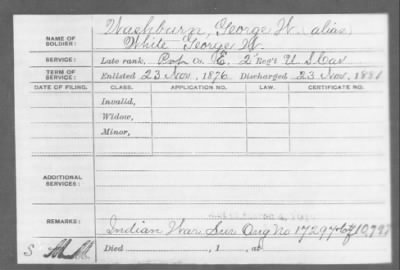 Washburn, George W. (alias)
NAME OF SOLDIER: White George W.
SERVICE: Late rank, Co. E, 2" Reg't U S Cav
TERM OF SERVICE: Enlisted 23 Nov, 1876 Discharged 23 Nov, 1881
DATE OF FILING. CLASS. APPLICATION NO. LAW. CERTIFICATE NO.
Invalid,
Widow,
Minor,
ADDITIONAL SERVICES:
REMARKS: Indian War Sur Orig No 17297 Ctf 10,797
S Died , 1 , at